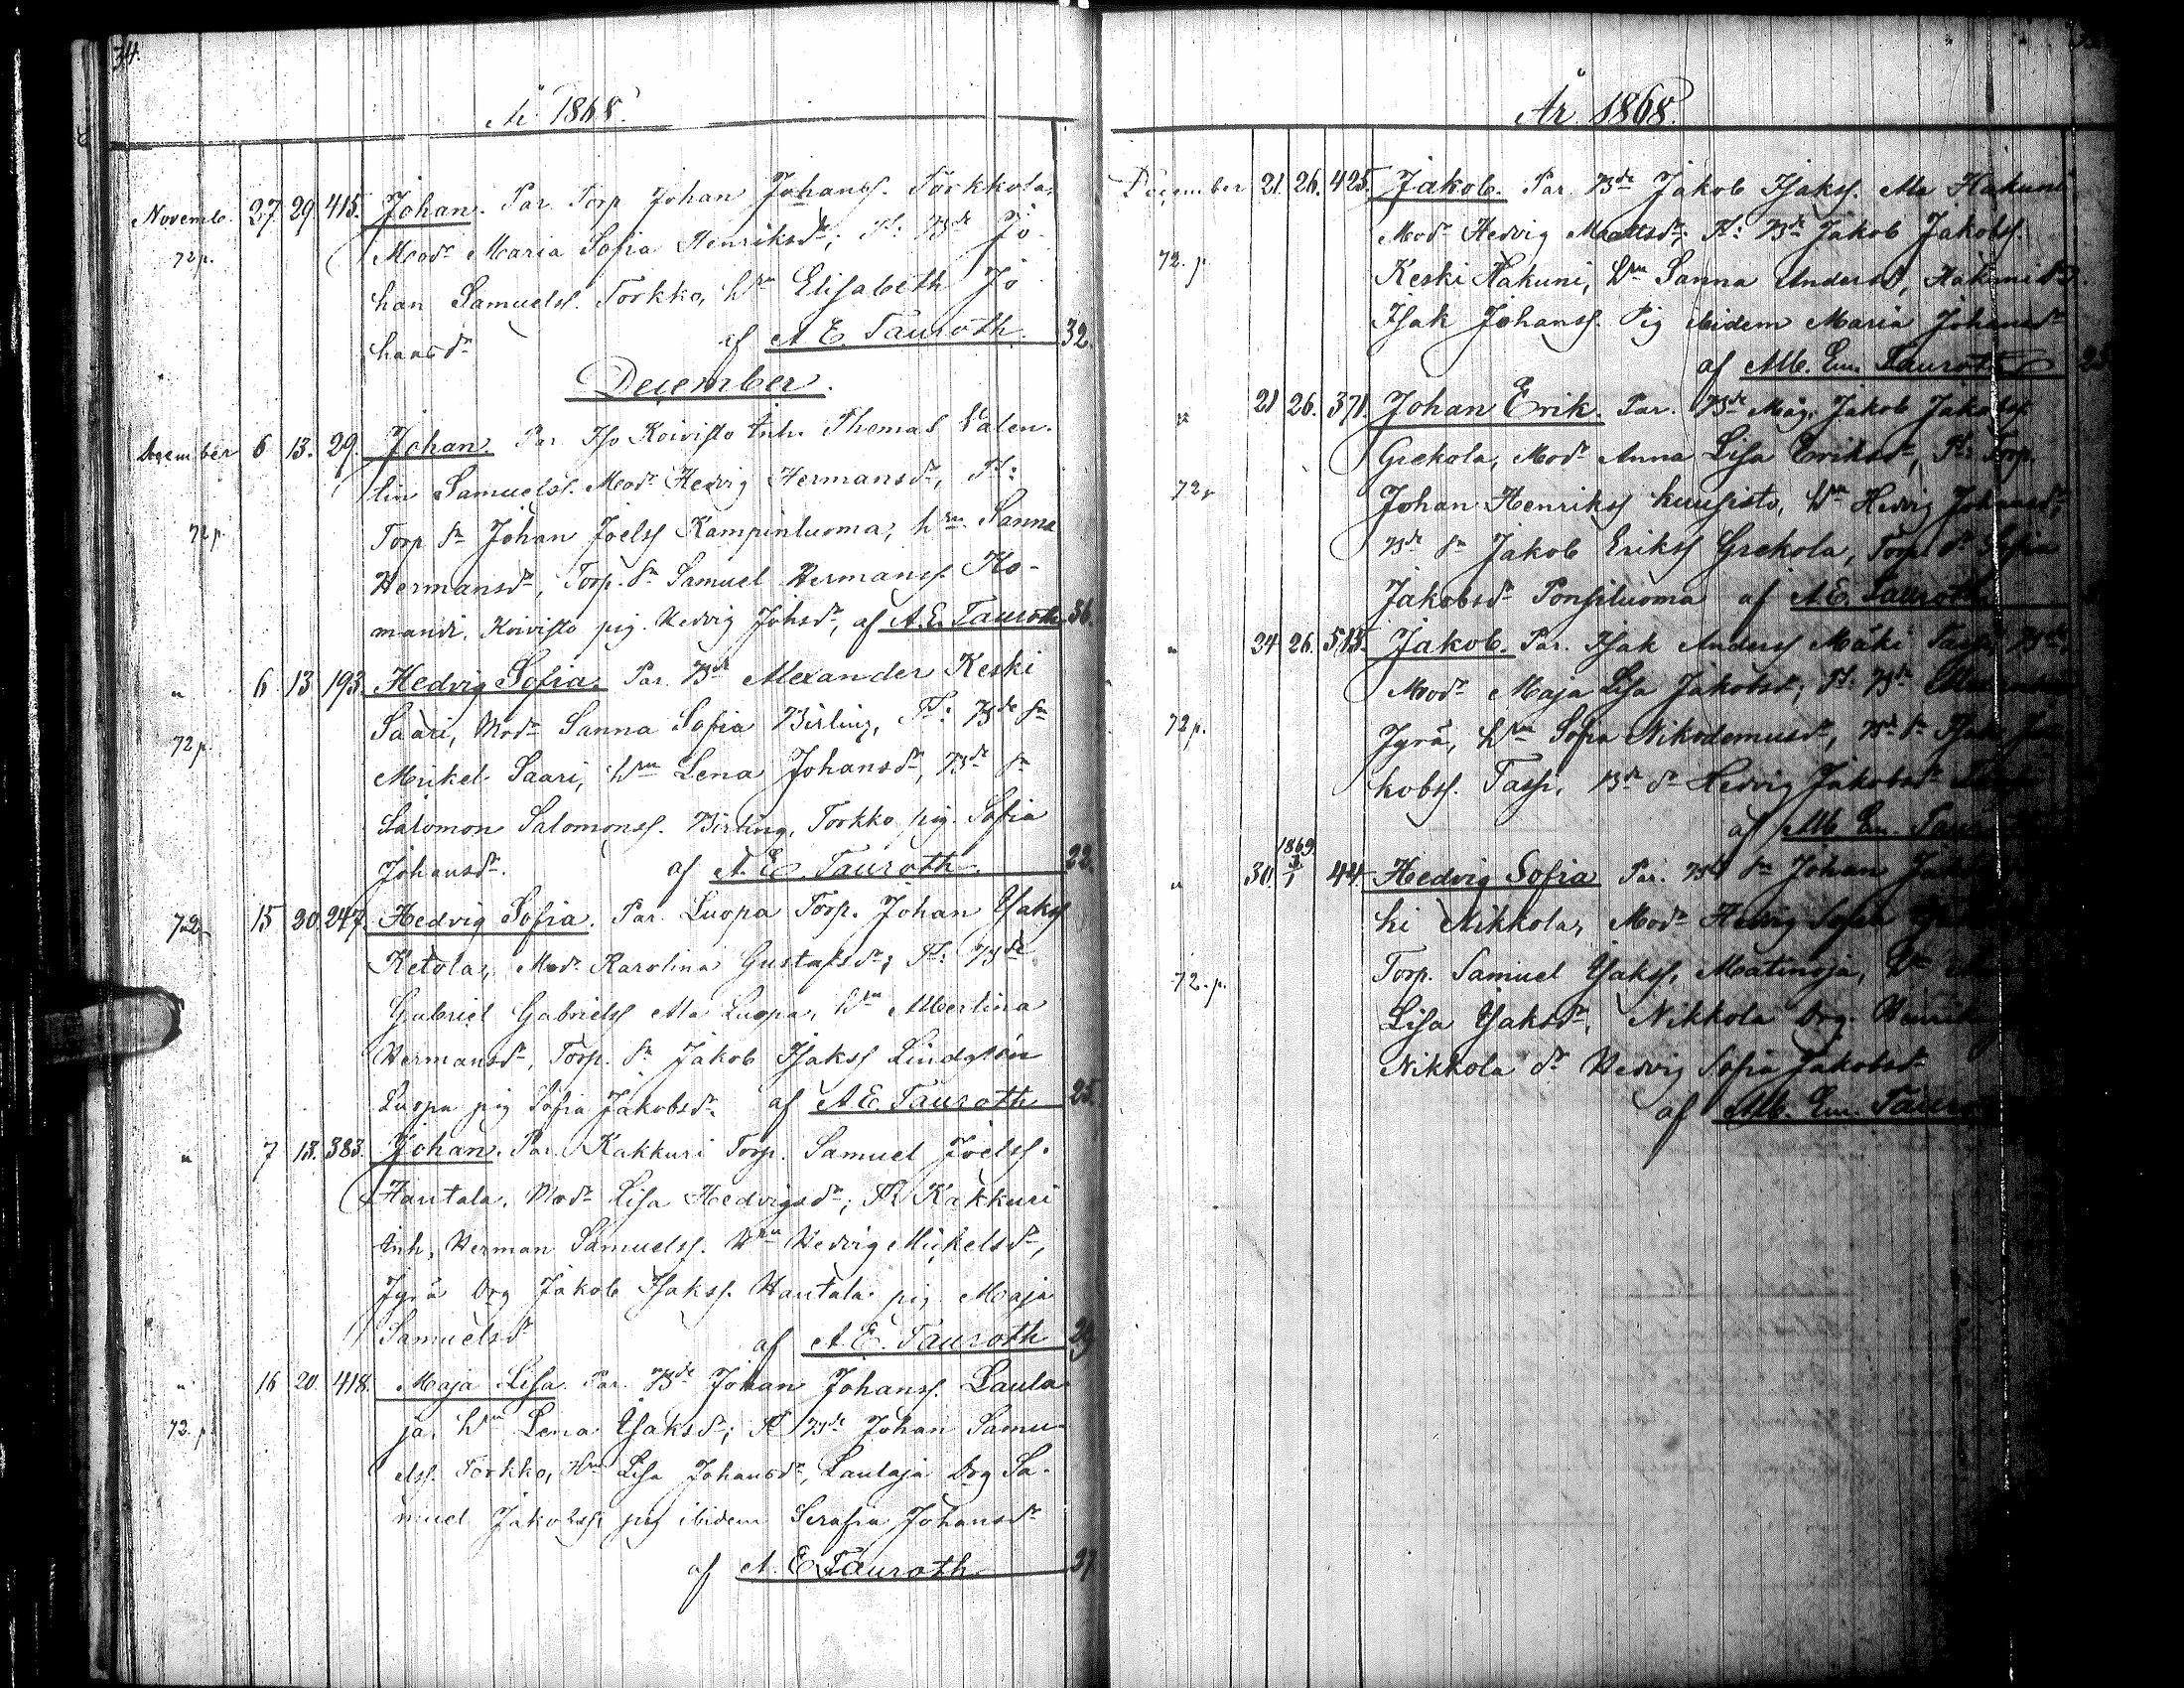 34.
År 1868.
Novemb. 27 29 415. Johan. Par. Torp Johan Johanss. Torkkola,
72 p. Mod:r Maria Sofia Henriksd:r; Ft: Bde Jo-
han Samuelss. Torkko, h:ru Elisabeth Jo
hansd:r af A E. Tauroth. 32.
December.
December 6 13. 29. Johan. Par. Iso Koivisto Inh. Thomas Valen-
tin Samuelss. Mod:r Hedvig Hermansd:r, Ft:
72 p. Torp. S:n Johan Joelss Kampinluoma, h:ru Sanna
Hermansd:r, Torp. S:n Samuel Hermanss. Ko-
mandi, Koivisto pig. Hedvig Johsd:r, af A.E. Tauroth 36.
" 6 13 193. Hedvig Sofia. Par. Bde Alexander Keski
72 p. Saari, Mod:r Sanna Sofia Birling, Ft: Bde S:n
Mikel Saari, h:ru Lena Johansd:r, Bde S:n
Salomon Salomonss. Birling, Torkko pig. Sofia
Johansd:r. af A. E. Tauroth. 22.
72 p 15 20 247. Hedvig Sofia. Par. Luopa Torp. Johan Isakss
Ketola, Mod:r Karolina Gustafsd:r; Ft: Bde
Gabriel Gabrielss Ala Luopa, h:ru Albertina
Hermansd:r, Torp. S:n Jakob Isakss Lindgrén
Luopa pig Sofia Jakobsd:r. af A E. Tauroth 25
" 7 13. 383. Johan. Par. Kakkuri Torp. Samuel Joelss.
Hautala, Mod:r Lisa Hedvigsd:r; Ft Kakkuri
Inh. Herman Samuelss. H:ru Hedvig Mickelsd:r,
Jyrä Drg Jakob Isakss. Hautala pig. Maja
Samuelsd:r af A. E. Tauroth 29
" 16 20. 418. Maja Lisa. Par. Bde Johan Johanss. Laula
72. p ja, h:ru Lena Isaksd:r; Ft Bde Johan Samu-
elss. Torkko, H:ru Lisa Johansd:r, Laulaja Drg Sa-
muel Jakobss, pig ibidem Serafia Johansd:r
af A. E Tauroth 27
År 1868.
December 21. 26. 425. Jakob. Par. Bde Jakob Isakss. Ala Hakuni
Mod:r Hedvig Mattsd:r; Ft: Bde Jakob Jakobss.
72. p. Keski Hakuni, h:ru Sanna Andersd:r, Hakuni
Isak Johanss. Pig ibidem Maria Johansd:r
af Alb. Em. Tauroth
" 21 26. 371. Johan Erik. Par. Bde Måg. Jakob Jakobss
Grekola, Mod:r Anna Lisa Eriksd:r, Ft: Torp.
72 p Johan Henrikss Kuusisto, h:ru Hedvig Johansd:r,
Bde S:n Jakob Erikss Grekola, Torp. D:r Sofia
Jakobsd:r Ponsiluoma af A E. Tauroth
" 24 26. 513. Jakob. Par. Isak Anderss Mäki Tassi
Mod:r Maja Lisa Jakobsd:r; Ft: Bde
72 p. Jyrä, h:ru Sofia Nikodemusd:r, Bde S:n Isak
kobss. Tassi, Bde D:r Hedvig Jakobsd:r
af Alb Em.
" 30. 1869 3/1 44. Hedvig Sofia Par. Bde S:n Johan
ki Nikkola, Mod:r Hedvig Sofia
72. p. Torp. Samuel Isakss. Matinoja,
Lisa Isaksd:r, Nikkola Drg.
Nikkola D:r Hedvig Sofia Jakobsd:r
af Alb. Em.